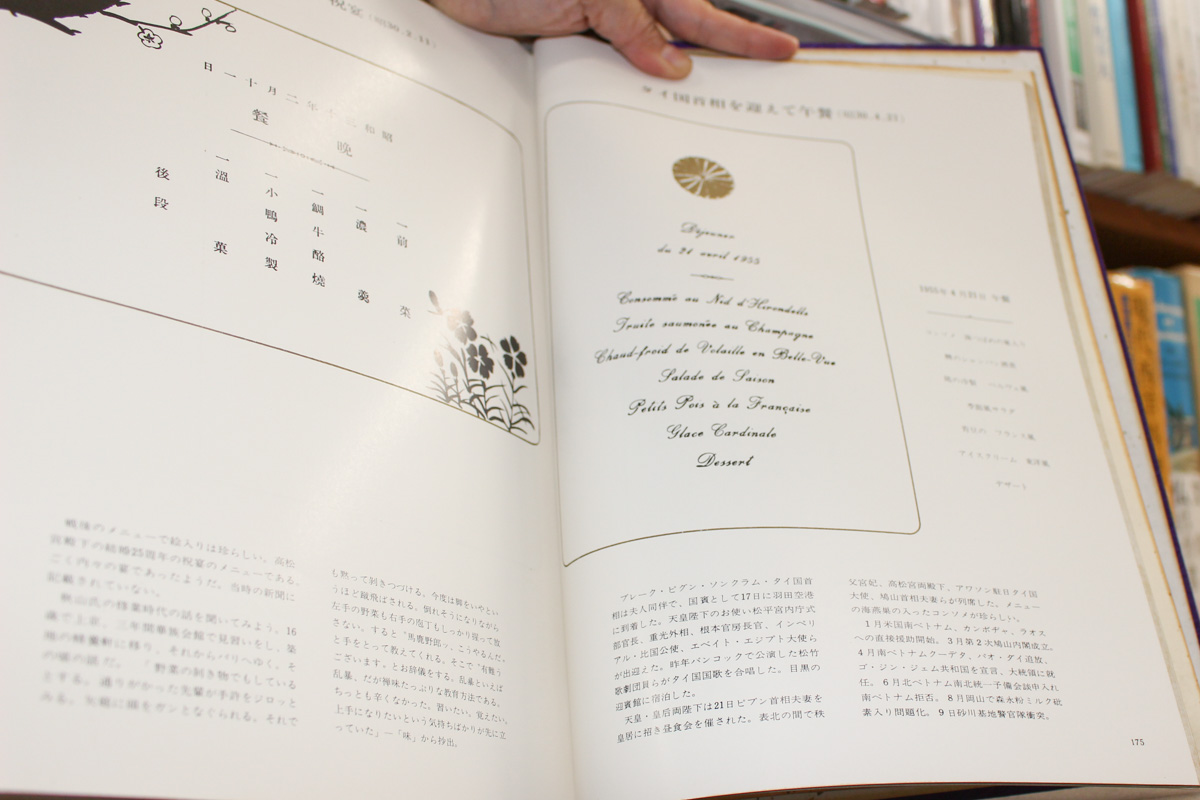 祝宴（昭30.2.11）
昭和三十年二月十一日
晩餐
一前菜
一濃羹
一鯛牛酪燒
一小鴨冷製
一溫菓
後段
戦後のメニューで絵入りは珍らしい。高松
宮殿下の結婚25周年の祝宴のメニューである。
ごく内々の宴であったようだ。当時の新聞に
記載されていない。
秋山氏の修業時代の話を聞いてみよう。16
歳で上京、三年間華族会館で見習いをし、築
地の精養軒に移り、それからパリへゆく。そ
の頃の話だ。「野菜の剝き物でもしている
とする。通りがかった先輩が手許をジロッと
みる。矢庭に頭をガンとなぐられる。それで
も黙って剝きつづける。今度は脚をいやとい
うほど蹴飛ばされる。倒れそうになりながら
左手の野菜も右手の庖丁もしっかり握って放
さない。すると〝馬鹿野郎ッ、こうやるんだ〟
と手をとって教えてくれる。そこで〝有難う
ございます〟とお辞儀をする。乱暴といえば
乱暴、だが禅味たっぷりな教育方法である。
ちっとも辛くなかった。習いたい、覚えたい、
上手になりたいという気持ちばかりが先に立
っていた」―「味」から抄出。
タイ国首相を迎えて午餐（昭30.4.21）
Déjeuner
du 21 avril 1955
Consommé au Nid d'Hirondelle
Truite saumonée au Champagne
Chaud-froid de Volaille en Belle-Vue
Salade de Saison
Petits Pois à la Française
Glace Cardinale
Dessert
1955年4月21日 午餐
季節風サラダ
デザート
プレーク・ピブン・ソンクラム・タイ国首
相は夫人同伴で、国賓として17日に羽田空港
に到着した。天皇陛下のお使い松平宮内庁式
部官長、重光外相、根本官房長官、インペリ
アル・比国公使、エベイト・エジプト大使ら
が出迎えた。昨年バンコックで公演した松竹
歌劇団員らがタイ国国歌を合唱した。目黒の
迎賓館に宿泊した。
天皇・皇后両陛下は21日ピブン首相夫妻を
皇居に招き昼食会を催された。表北の間で秩
父宮妃、高松宮両殿下、アワソン駐日タイ国
大使、鳩山首相夫妻らが列席した。メニュー
の海燕巣の入ったコンソメが珍らしい。
1月米国南ベトナム、カンボヂャ、ラオス
への直接援助開始。3月第2次鳩山内閣成立。
4月南ベトナムクーデタ、バオ・ダイ追放、
ゴ・ジン・ジェム共和国を宣言、大統領に就
任。6月北ベトナム南北統一予備会談申入れ
南ベトナム拒否。8月岡山で森永粉ミルク砒
素入り問題化。9日砂川基地警官隊衝突。
175